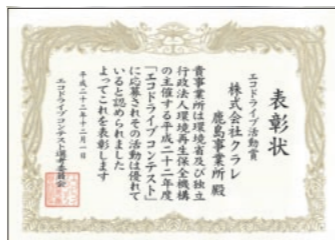 表彰状
エコドライブ活動賞
株式会社クラレ
鹿島事業所 殿
貴事業所は環境省及び独立
行政法人環境再生保全機構
の主催する平成二十二年度
「エコドライブコンテスト」
に応募されその活動は優れて
いると認められました
よってこれを表彰します
平成二十二年十二月一日
エコドライブコンテスト選考委員会